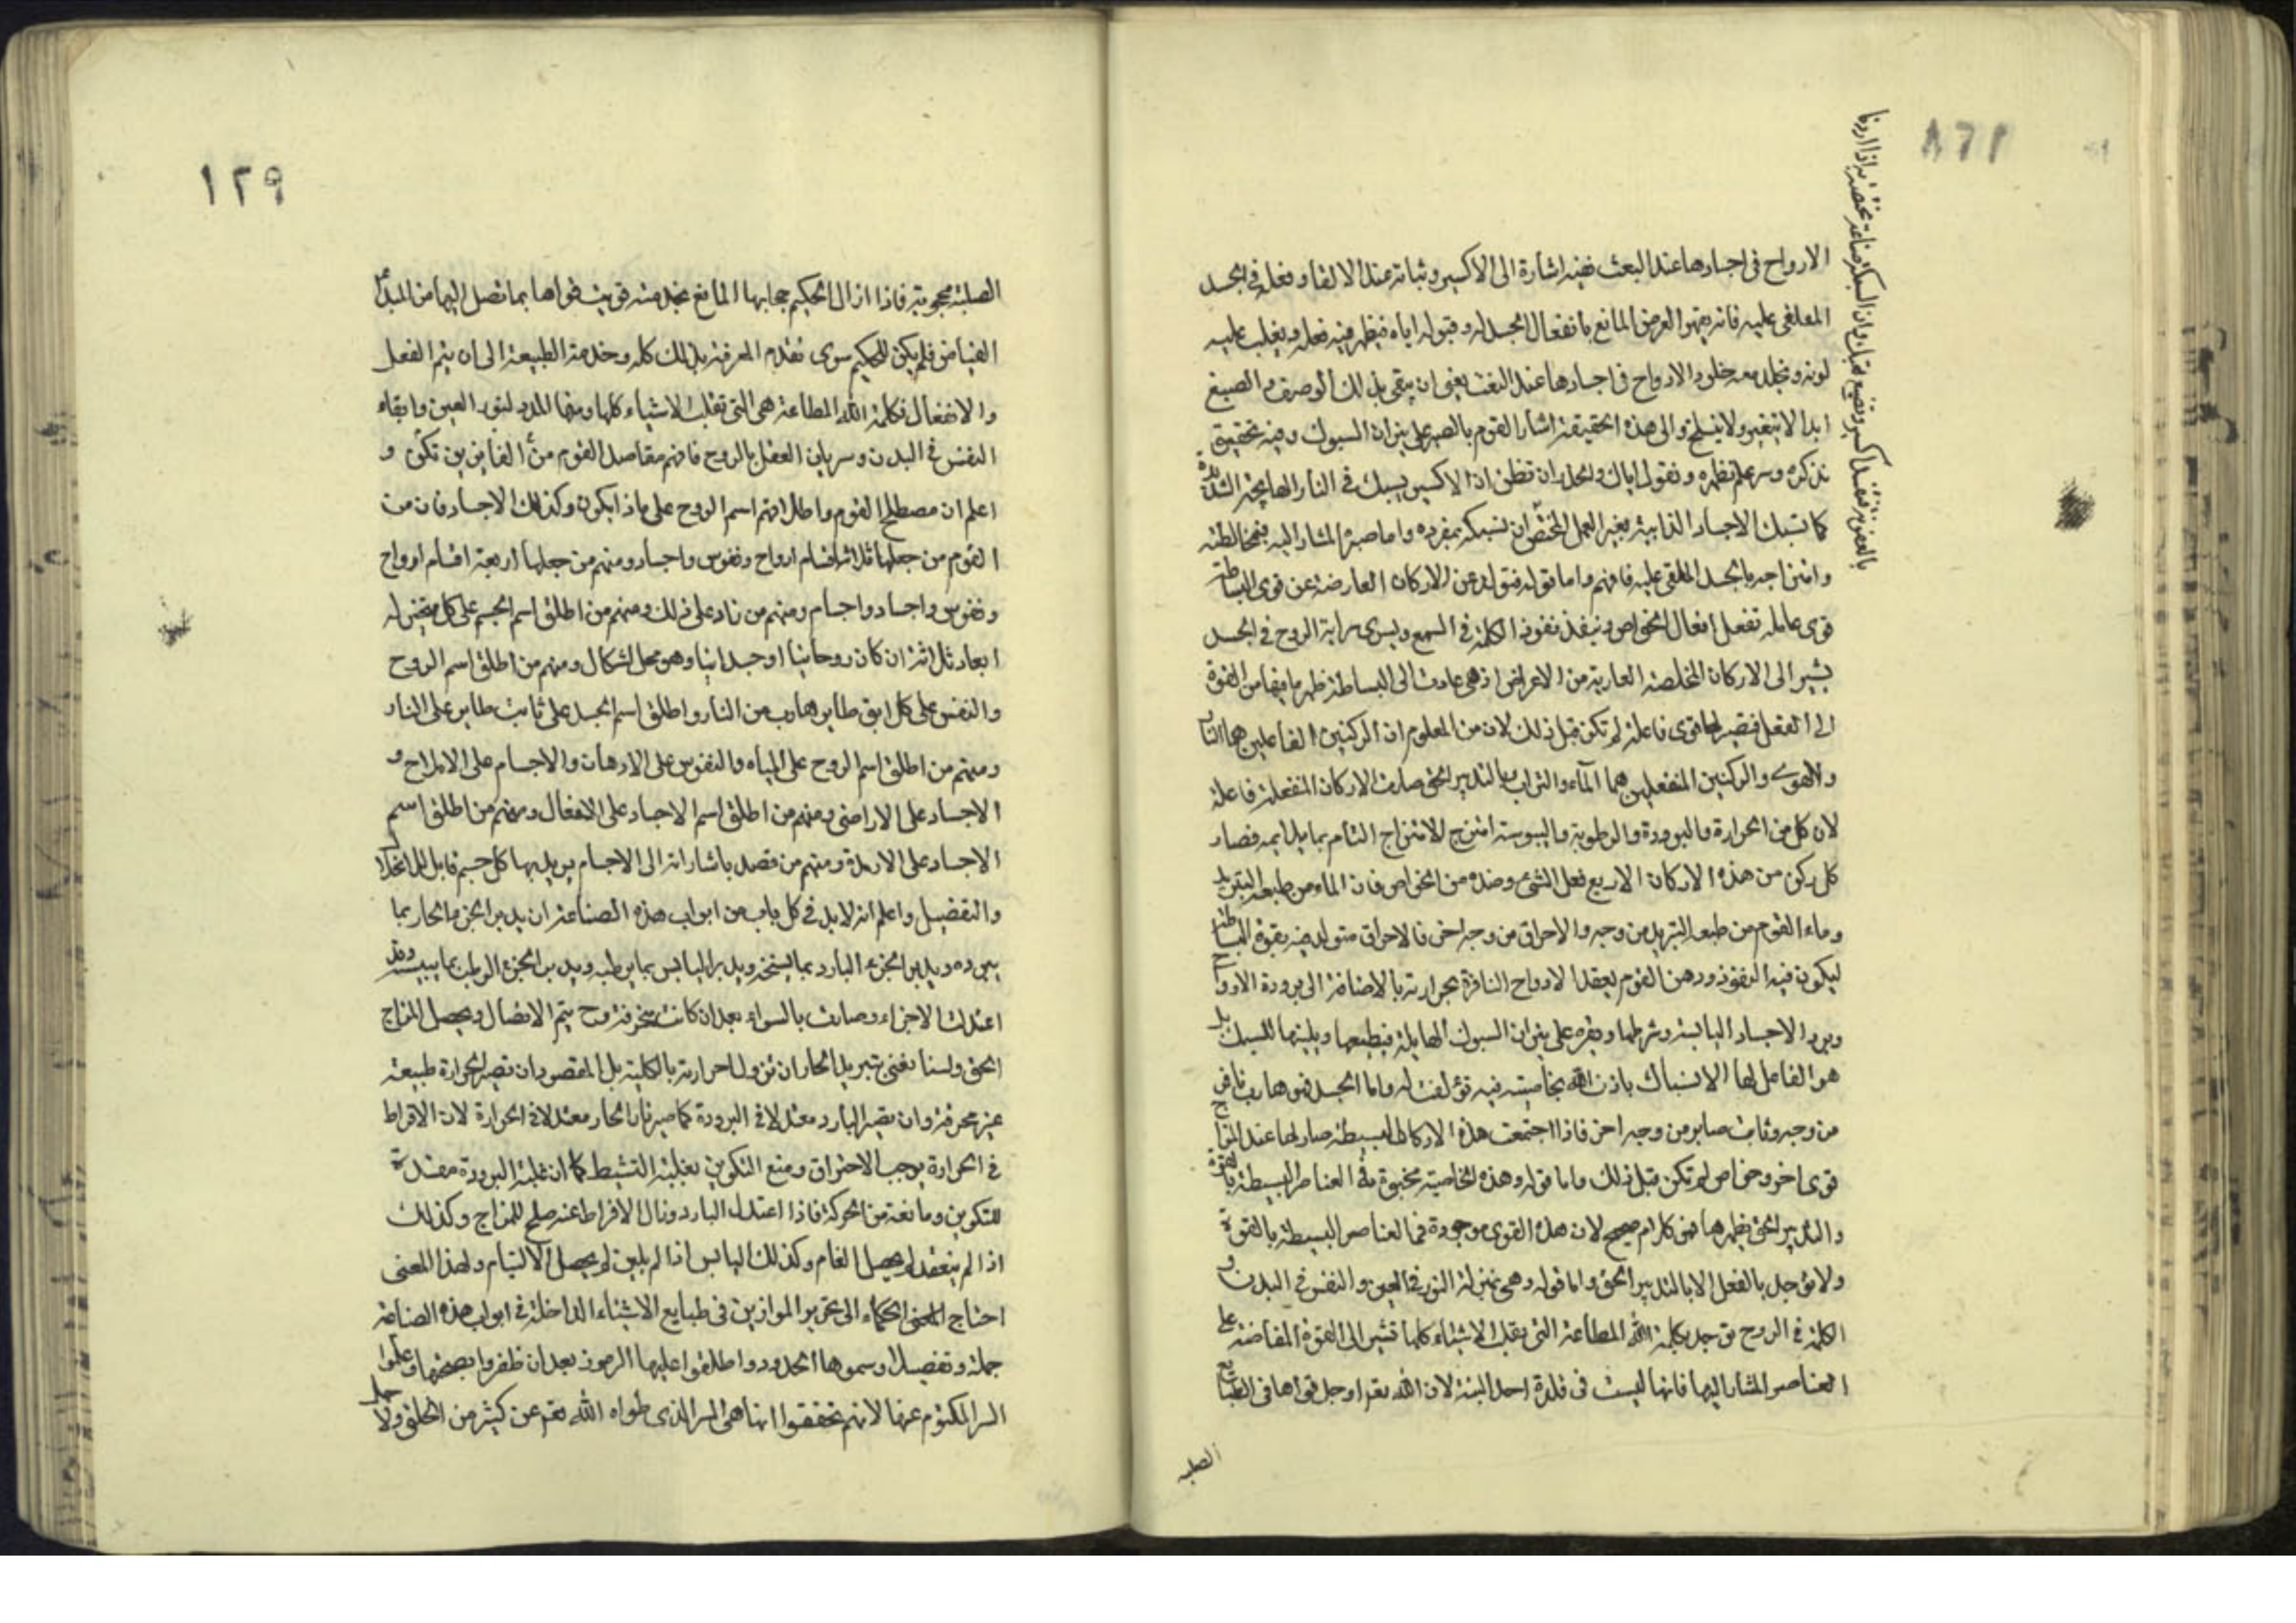 ١٢٨
الارواح في اجسادها عند البعث ففيه اشارة الى الاكسير وثباته عند الالقا وفعله في الجسد
الملقى عليه فانه يقهر العرض المانع بانفعال الجسد له وقبوله اياه فيظهر فيه فعله ويغلب عليه
لونه ويخلد معه خلود الارواح في اجسادها عند البعث يعني ان يبقى بذلك الوصف والصبغ
ابدا لا يتغير ولا ينسلخ والى هذه الحقيقة اشار القوم بالصبر على نيران السبوك وفيه تحقيق
نذكره وسر علم نظهره ونقول اياك والحذر ان تظن ان الاكسير يسبك في النار الهايجة الشديدة
كما تسبك الاجساد الذايبة بغير العمل المختص ان نسبكه بمفرده واما صبره المشار اليه بمخالطته
وامتزاجه بالجسد الملقى عليه فافهم واما قوله فتولد عن الاركان العارضة عن قوى البساطة
قوى عاملة تفعل افعال الخواص وينفذ نفوذ الكلمة في السمع ويسرى سراية الروح في الجسد
يشير الى الاركان المخلصة العارية من الاعراض اذ هي عادت الى البساطة ظهر ما فيها من القوة
الى الفعل فتصير لها قوى فاعلة لم تكن قبل ذلك لان من المعلوم ان الركنين الفاعلين هما النار
والاهوى والركنين المنفعلين هما المآء والتراب وبالتدبير الحق صارت الاركان المنفعلة فاعلة
لان كل من الحرارة والبرودة والرطوبة واليبوسة امتزج الامتزاج التام بما يلايمه فصار
كل ركن من هذه الاركان الاربع فعل الشئ وضده من الخواص فان الماء من طبعه التبريد
وماء القوم من طبعه التبريد من وجه والاحراق من وجه اخر فالاحراق متولد فيه بقوة البساطة
ليكون فيه النفوذ ودهن القوم يعقد الارواح النافرة بحرارته بالاضافة الى برودة الارواح
ويرد الاجساد اليابسة وشرطها ويقره على نيران السبوك الهايلة فيطيعها ويلينها للسبك بل
هو الفاعل لها الانسباك باذن الله بخاصيته فيه تؤلفت له واما الجسد فهو هارب نافر
من وجه وثابت صابر من وجه اخر فاذا اجتمعت هذه الاركان البسيطة صار لها عند المزاج
قوى اخر وخواص لم تكن قبل ذلك واما قوله وهذه الخاصية مخبوة في العناصر البسيطة بالقوة
والتدبير الحق يظهرها فهو كلام صحيح لان هذه القوى موجودة في العناصر البسيطة بالقوة
ولا توجد بالفعل الا بالتدبير الحق واما قوله وهي بمنزلة النور في العين والنفس في البدن و
الكلمة في الروح توجد بكلمة الله المطاعة التي تقلب الاشياء كلها تشير الى القوة المفاضة على
العناصر المشار اليها فانها ليست في قدرة احد البتة لان الله تع اوجد قواها في الطبايع
الصلبه
بالعرض فتفسد اكسيره وتضيع تعبك وان السبك صناعة تختص به اذا اردنا
١٢٩
الصلبة محجوبة فاذا ازال الحكيم حجابها المانع بخدمته قويت قواها بما تصل اليها من المبدأ
الفياض فلم يكن للحكيم سوى تقدم المعرفة بذلك كله وخدمة الطبيعة الى ان يتم الفعل
والانفعال فكلمة الله المطاعة هي التي تقلب الاشياء كلها ومنها المدد لنور العين وابقاء
النفس في البدن وسريان العقل بالروح فافهم مقاصد القوم من الفايزين تكن و
اعلم ان مصطلح القوم واطلاقهم اسم الروح على ماذا يكون وكذلك الاجساد فان من
القوم من جعلها ثلاثة اقسام ارواح ونفوس واجساد ومنهم من جعلها اربعة اقسام ارواح
ونفوس واجساد واجسام ومنهم من زاد على ذلك ومنهم من اطلق اسم الجسم على كل متحيز له
ابعاد ثلاثة ان كان روحانيا او جسدانيا وهو محل اشكال ومنهم من اطلق اسم الروح
والنفس على كل ابق طاير هارب من النار واطلق اسم الجسد على ثابت طاير على النار
ومنهم من اطلق اسم الروح على المياه والنفوس على الادهان والاجسام على الاملاح و
الاجساد على الاراضى ومنهم من اطلق اسم الاجساد على الاثفال ومنهم من اطلق اسم
الاجساد على الارمدة ومنهم من قصد باشاراته الى الاجسام يريد بها كل جسم قابل للانحلال
والتفصيل واعلم انه لابد في كل باب من ابواب هذه الصناعة ان يدبر الجزء الحار بما
يبرده ويدبر الجزء البارد بما يسخنه ويدبر اليابس بما يرطبه ويدبر الجزء الرطب بما ييبسه وقد
اعتدلت الاجزاء وصارت بالسواء بعد ان كانت منحرفة وح يتم الاتصال ويحصل المزاج
الحق ولسنا نعني تبريد الحار ان تزول حرارته بالكلية بل المقصود ان تصير الحرارة طبيعة
غير محرقة وان يصير البارد معتدلا في البرودة كما صيرنا الحار معتدلا في الحرارة لان الافراط
في الحرارة يوجب الاحتراق ومنع التكوين بغلبة التشيط كما ان غلبة البرودة مفسدة
للتكوين ومانعة من الحركة فاذا اعتدل البارد وزال الافراط عنه صلح للمزاج وكذلك
اذا لم ينعقد لم يحصل القام وكذلك اليابس اذا لم يلين لم يحصل الالتيام ولهذا المعنى
احتاج الحكماء الى تحرير الموازين في طبايع الاشياء الداخلة في ابواب هذه الصناعة
جملة وتفصيلا وسموها الحدود واطلقوا عليها الرموز بعد ان ظفروا بصحتها وعلموا
السر المكتوم عنها لانهم تحققوا انها هي السر الذى طواه الله تع عن كثير من الخلق ولاجل